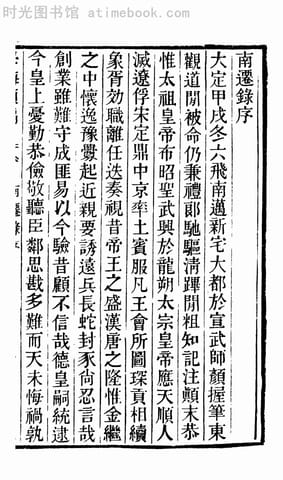 时光图书馆 - booksoftime.com
南遷錄序
大定甲戌冬六飛南邁新宅大都於宣武師顏握筆東
觀道閒被命仍兼禮郎馳驅清蹕閒粗知記注顛末恭
惟太祖皇帝布昭聖武興於龍朔太宗皇帝應天順人
滅遼俘宋定鼎中京率土賓服凡王會所圖琛貢相續
象胥効職離任迭奏視昔帝王之盛漢唐之隆惟金繼
之中懷逸豫釁起近親要誘遠兵長蛇封豕尙忍言哉
創業雖難守成匪易以今驗昔顧不信哉德皇嗣統逮
今皇上憂勤恭儉敬聽臣鄰思戡多難而天未悔禍孰